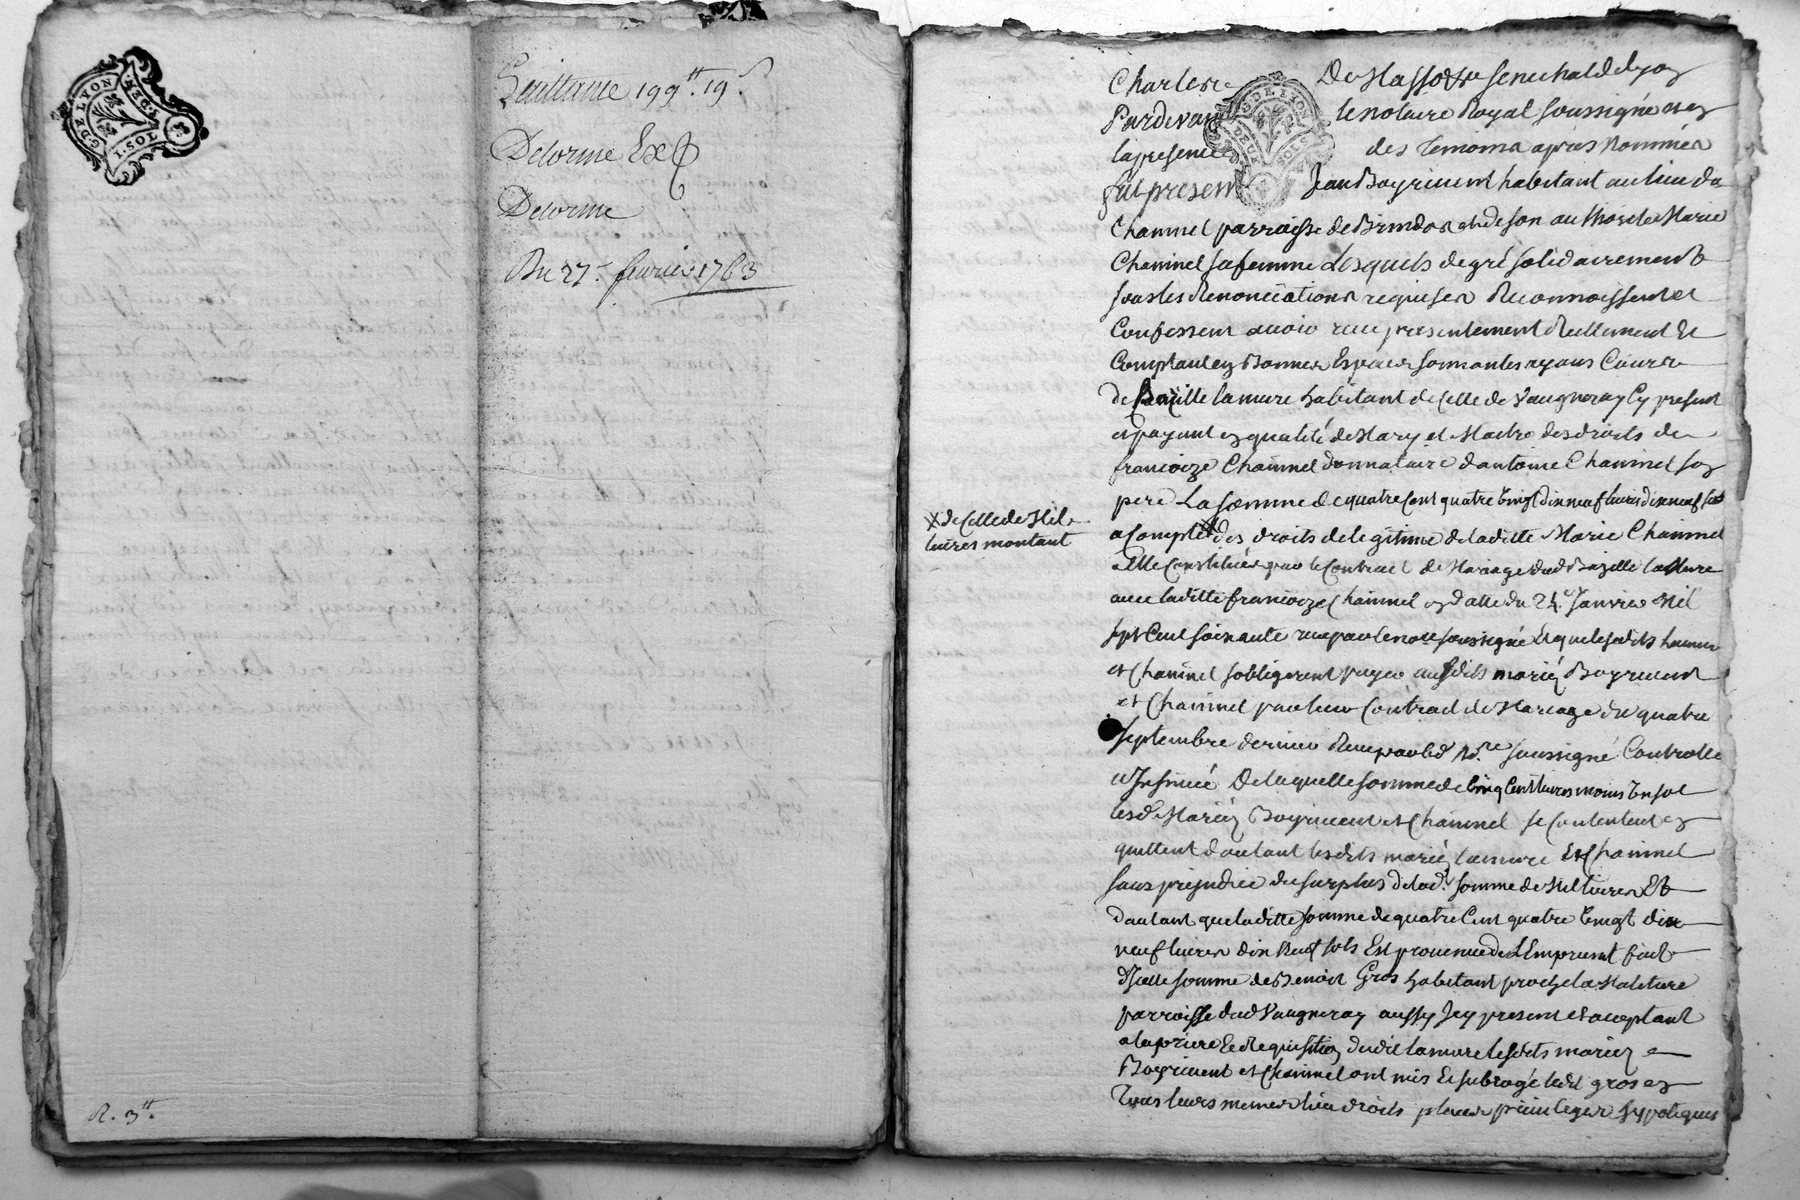 G. DE LYON
I. SOL. DEN.
Quittance 199 ᵗᵗ. 19 ˢ
Delorme Ex
Delorme
Du 27 ᵉ. fevrier 1763
R. 3 ᵗᵗ.
G. DE LYON
DEUX SOLS
Charles
De Masso senechal de Lyon
Pardevant
le notaire Royal soussigné et en
la presence
des temoins apres Nommés
fut present
Jean Boyricuent habitant au lieu du
Chaninel parroisse de Brindas et de son authorité Marie
Chaninel sa femme Lesquels de gré solidairement
sous les Renonciations requises Reconnoissent et
Confessent avoir receu presentement Reellement et
Comptant en Bonnes Especes sonnantes ayans Cours
de Bazille lamure habitant de Celle de Vaugneray Cy present
et payant en qualité de Mary et Maitre des droits de
francoize Chaninel donnataire d'antoine Chaninel son
pere La somme de quatre Cent quatre Vingt dix neuf livres dix neuf sols
X de Celle de Mil
livres montant
a Compte X des droits de legitime de laditte Marie Chaninel
a Elle Constitués par le Contract de Mariage dud Bazille lamure
avec laditte francoize Chaninel en datte du 24. Janvier Mil
sept Cent soixante receu par le no.re soussigné Et que lesdits lamure
et Chaninel sobligerent payer ausdits mariéz Boyricuent
et Chaninel par leur Contract de Mariage du quatre
septembre dernier Receu par led N.re soussigné Controllé
et Insinué De laquelle somme de Cinq Cent livres moins Un sol
lesd. Mariéz Boyricuent et Chaninel se Contentent en
quittent d'autant lesdits mariéz lamure Et Chaninel
sans prejudice du surplus de lad. somme de Mil livres Et
d'autant que laditte somme de quatre Cent quatre Vingt dix
neuf livres dix Neuf sols Est provenue de L'Emprunt fait
d'Icelle somme de Benoit Gros habitant proche la Maletiere
parroisse dud Vaugneray aussy Icy present et acceptant
a la priere Et Requisition dudit lamure lesdits mariéz
Boyricuent et Chaninel ont mis Et subrogé ledit gros en
Tous leurs mêmes lieu droits places privileges hypoteques